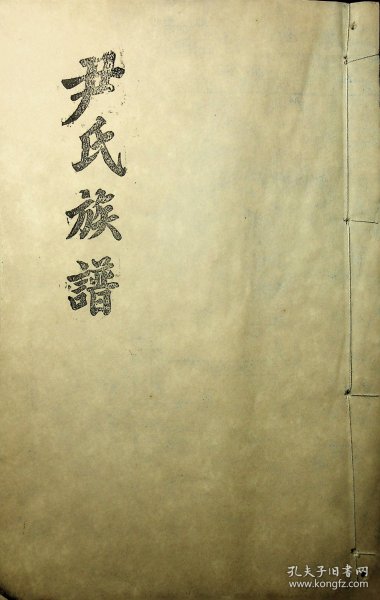 尹氏族譜
孔夫子旧书网
kongfz.com